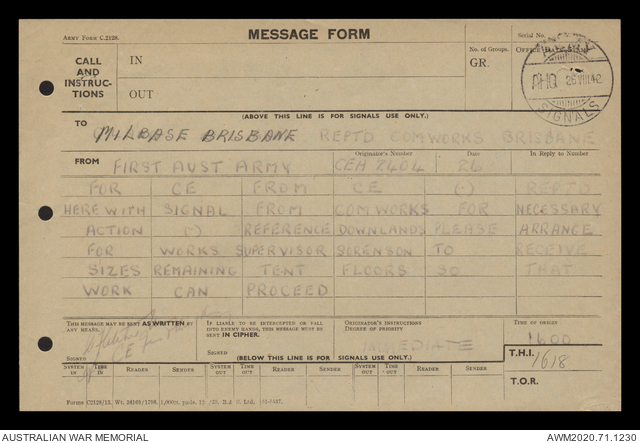 Army Form C.2128.
MESSAGE FORM
Serial No.
CALL AND INSTRUCTIONS
IN
OUT
No. of Groups.
GR.
SIGNALS
AHQ 26 VIII 42
(ABOVE THIS LINE IS FOR SIGNALS USE ONLY.)
TO
MILBASE BRISBANE REPTD COMWORKS BRISBANE
FROM
FIRST AUST ARMY
Originator's Number
CEH 2404
Date
26
In Reply to Number
FOR CE FROM CE (-) REPTD
HEREWITH SIGNAL FROM COMWORKS FOR NECESSARY
ACTION (-) REFERENCE DOWNLANDS PLEASE ARRANGE
FOR WORKS SUPERVISOR SORENSON TO RECEIVE
SIZES REMAINING TENT FLOORS SO THAT
WORK CAN PROCEED
THIS MESSAGE MAY BE SENT AS WRITTEN BY ANY MEANS.
IF LIABLE TO BE INTERCEPTED OR FALL INTO ENEMY HANDS, THIS MESSAGE MUST BE SENT IN CIPHER.
ORIGINATOR'S INSTRUCTIONS
DEGREE OF PRIORITY
IMMEDIATE
TIME OF ORIGIN
1600
SIGNED
SIGNED
(BELOW THIS LINE IS FOR SIGNALS USE ONLY.)
T.H.I. 1618
SYSTEM IN
TIME IN
READER
SENDER
SYSTEM OUT
TIME OUT
READER
SENDER
SYSTEM OUT
TIME OUT
READER
SENDER
T.O.R.
AUSTRALIAN WAR MEMORIAL
AWM2020.71.1230